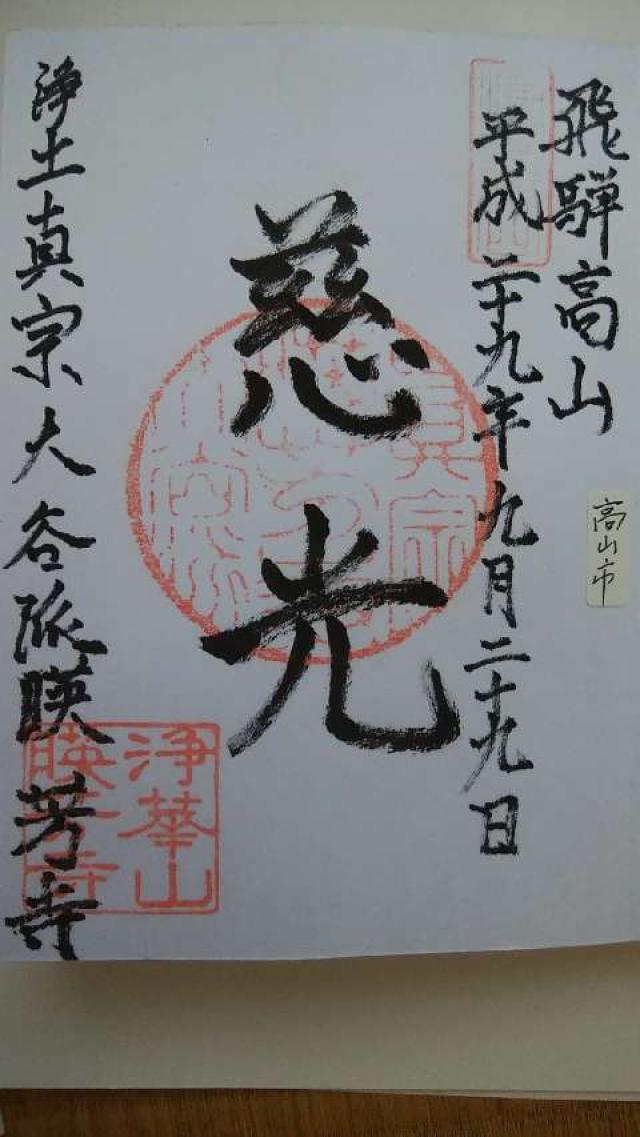 飛騨高山
平成二十九年九月二十九日
高山市
慈光
浄土真宗大谷派暎芳寺
浄華山
暎芳寺